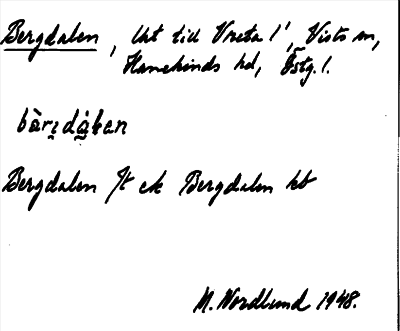 Bergdalen, lht till Vreta 1¹, Vists sn,
Hanekinds hd, Östg. l.
bàrꭇdȧlen
Bergdalen ek Bergdalen kb
M. Nordlund 1948.